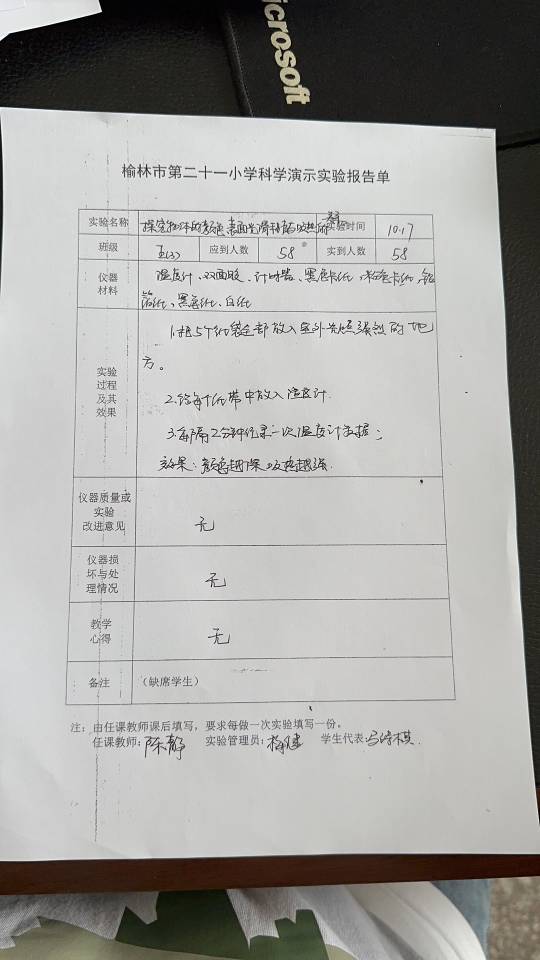 Microsoft
榆林市第二十一小学科学演示实验报告单
实验名称 探究物体的颜色、表面 吸热 实验时间 10.17
班级 五(3) 应到人数 58 实到人数 58
仪器材料 温度计、双面胶、计时器、黑色卡纸、粉色卡纸、铝
箔纸、黑色纸、白纸
实验过程及其效果 1.把5个纸袋全部放入室外光照强烈的地
方。
2.给每个纸带中放入温度计
3.每隔2分钟记录一次温度计数据;
效果:颜色越深吸热越强
仪器质量或实验改进意见 无
仪器损坏与处理情况 无
教学心得 无
备注 (缺席学生)
注:由任课教师课后填写,要求每做一次实验填写一份。
任课教师:陈静 实验管理员: 学生代表: